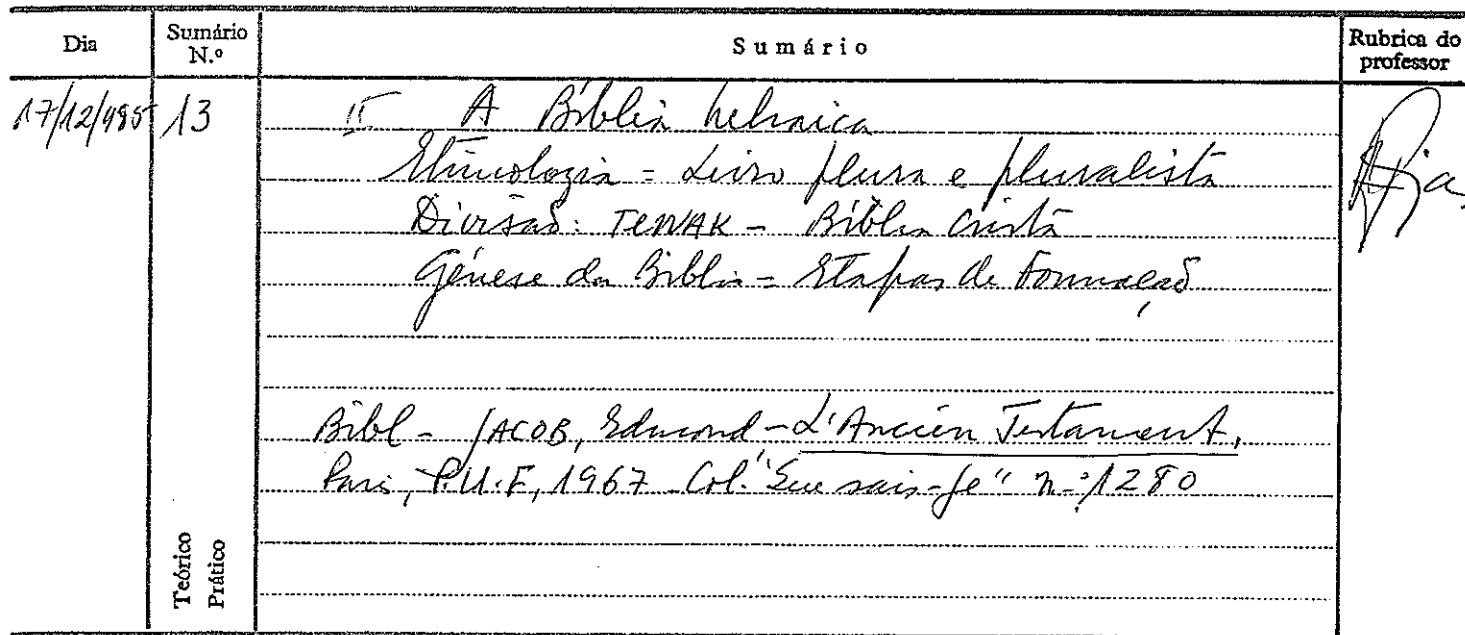 Dia
Sumário N.º
Sumário
Rubrica do professor
17/12/985
13
II A Bíblia hebraica
Etimologia = Livro plural e pluralista
Divisão: TENAK - Bíblia Cristã
Génese da Bíblia = Etapas de Formação
Bibl - JACOB, Edmond - L'Ancien Testament,
Paris, P.U.F, 1967 - Col. "Que sais-je" n.º 1280
Teórico
Prático